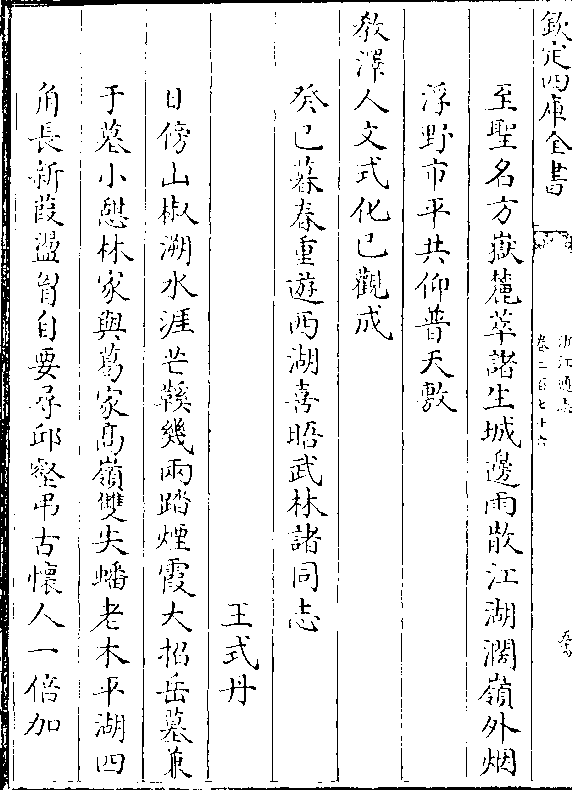 欽定四庫全書
浙江通志
卷二百七十六
至聖名方嶽麓萃諸生城邊雨散江湖濶嶺外烟
浮野市平共仰普天敷
教澤人文式化已觀成
癸巳暮春重遊西湖喜晤武林諸同志
王式丹
日傍山椒溯水涯芒鞵幾兩踏煙霞大招岳墓兼
于墓小憇林家與葛家髙嶺雙尖蟠老木平湖四
角長新葭盪胷自要尋邱壑弔古懷人一倍加